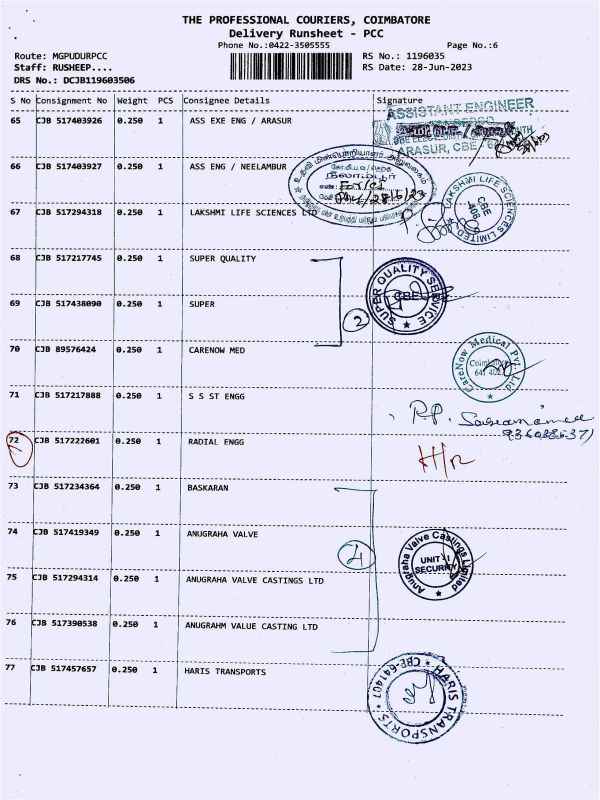 THE PROFESSIONAL COURIERS, COIMBATORE
Delivery Runsheet - PCC
Phone No.:0422-3505555 Page No.:6
Route: MGPUDURPCC RS No.: 1196035
Staff: RUSHEEP.... RS Date: 28-Jun-2023
DRS No.: DCJB119603506
S No Consignment No Weight PCS Consignee Details Signature
65 CJB 517403926 0.250 1 ASS EXE ENG / ARASUR
ASSISTANT ENGINEER
ARASUR, CBE
66 CJB 517403927 0.250 1 ASS ENG / NEELAMBUR
நீலாம்பூர்
67 CJB 517294318 0.250 1 LAKSHMI LIFE SCIENCES LTD
LAKSHMI LIFE SCIENCES LIMITED
CBE
68 CJB 517217745 0.250 1 SUPER QUALITY
SUPER QUALITY SERVICE
CBE
69 CJB 517438090 0.250 1 SUPER
2
70 CJB 89576424 0.250 1 CARENOW MED
CareNow Medical Pvt. Ltd
71 CJB 517217888 0.250 1 S S ST ENGG
72 CJB 517222601 0.250 1 RADIAL ENGG
H/R
73 CJB 517234364 0.250 1 BASKARAN
74 CJB 517419349 0.250 1 ANUGRAHA VALVE
4
Anugraha Valve Castings Limited
UNIT-I
SECURITY
75 CJB 517294314 0.250 1 ANUGRAHA VALVE CASTINGS LTD
76 CJB 517390538 0.250 1 ANUGRAHM VALUE CASTING LTD
77 CJB 517457657 0.250 1 HARIS TRANSPORTS
HARIS TRANSPORTS
CBE-641407